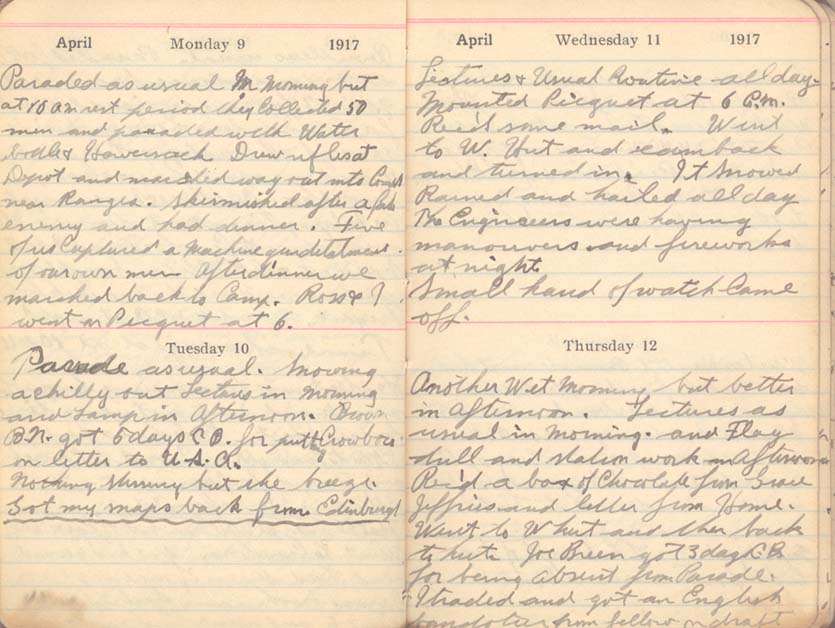 April Monday 9 1917
Paraded as usual in morning but
at 10 am rest period they Collected 50
men and paraded with Water
bottle & Haversack Drew rifles at
Depot and marched way out into
near Ranges. Skirmished after a
enemy and had dinner. Five
of us Captured a Machine gun detatchment
of our own men After dinner we
marched back to Camp. Ross & I
went on Picquet at 6.
Tuesday 10
Parade as usual. Snowing
a chilly out Lectures in morning
and Lamp in Afternoon. Brown
B.N. got 5 days C.B. for putting
on letter to U.S.A.
Nothing stirring but the breeze.
Got my maps back from Edinburgh
April Wednesday 11 1917
Lectures & Usual Routine all day.
Mounted Picquet at 6 P.M.
Rec'd some mail. Went
to W. Hut and came back
and turned in. It Snowed
Rained and hailed all day
The Engineers were having
manouvers and fireworks
at night
Small hand of watch Came
off.
Thursday 12
Another Wet Morning but better
in afternoon. Lectures as
usual in morning. and Flag
drill and station work in Afternoon
Rec'd a box of Chocolate from Grace
Jeffries and letter from Home.
Went to W hut and then back
to hut. Joe Breen got 3 days C.B.
for being absent from Parade.
I traded and got an English
bandolier from fellow on draft